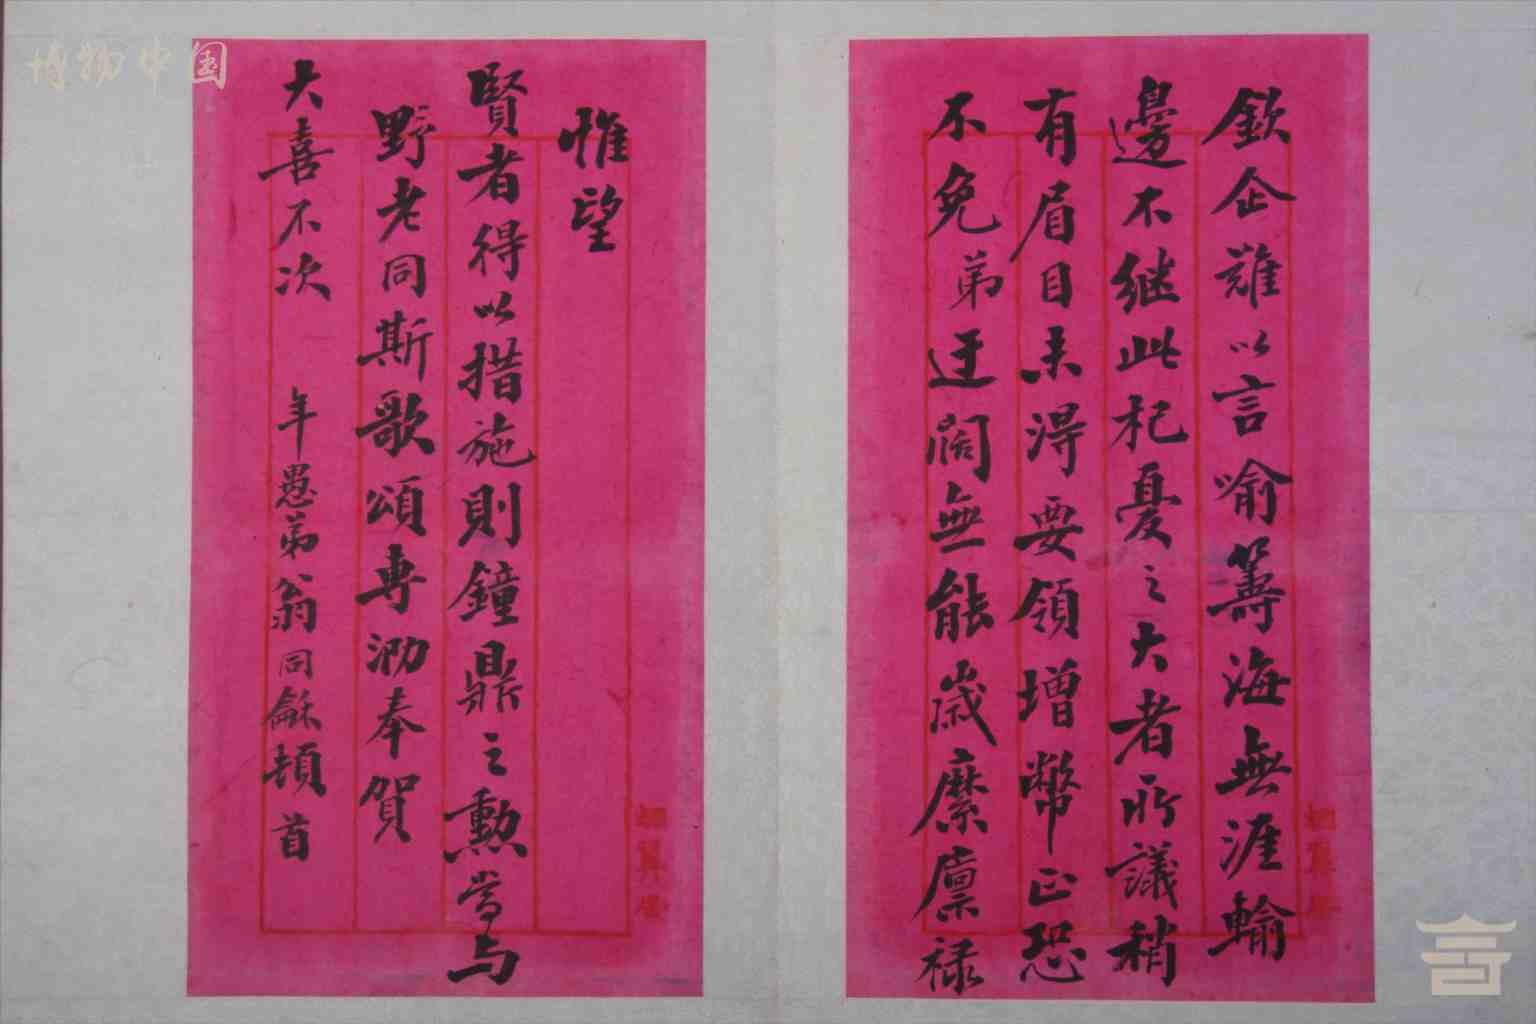 欽企難以言喻籌海無涯輸
邊不继此杞憂之大者所議稍
有眉目未得要領增幣正恐
不免弟迂闊無能歲糜廩禄
惟望
賢者得以措施則鐘鼎之勳當与
野老同斯歌頌專泐奉賀
大喜不次 年愚弟翁同龢頓首
博物中国